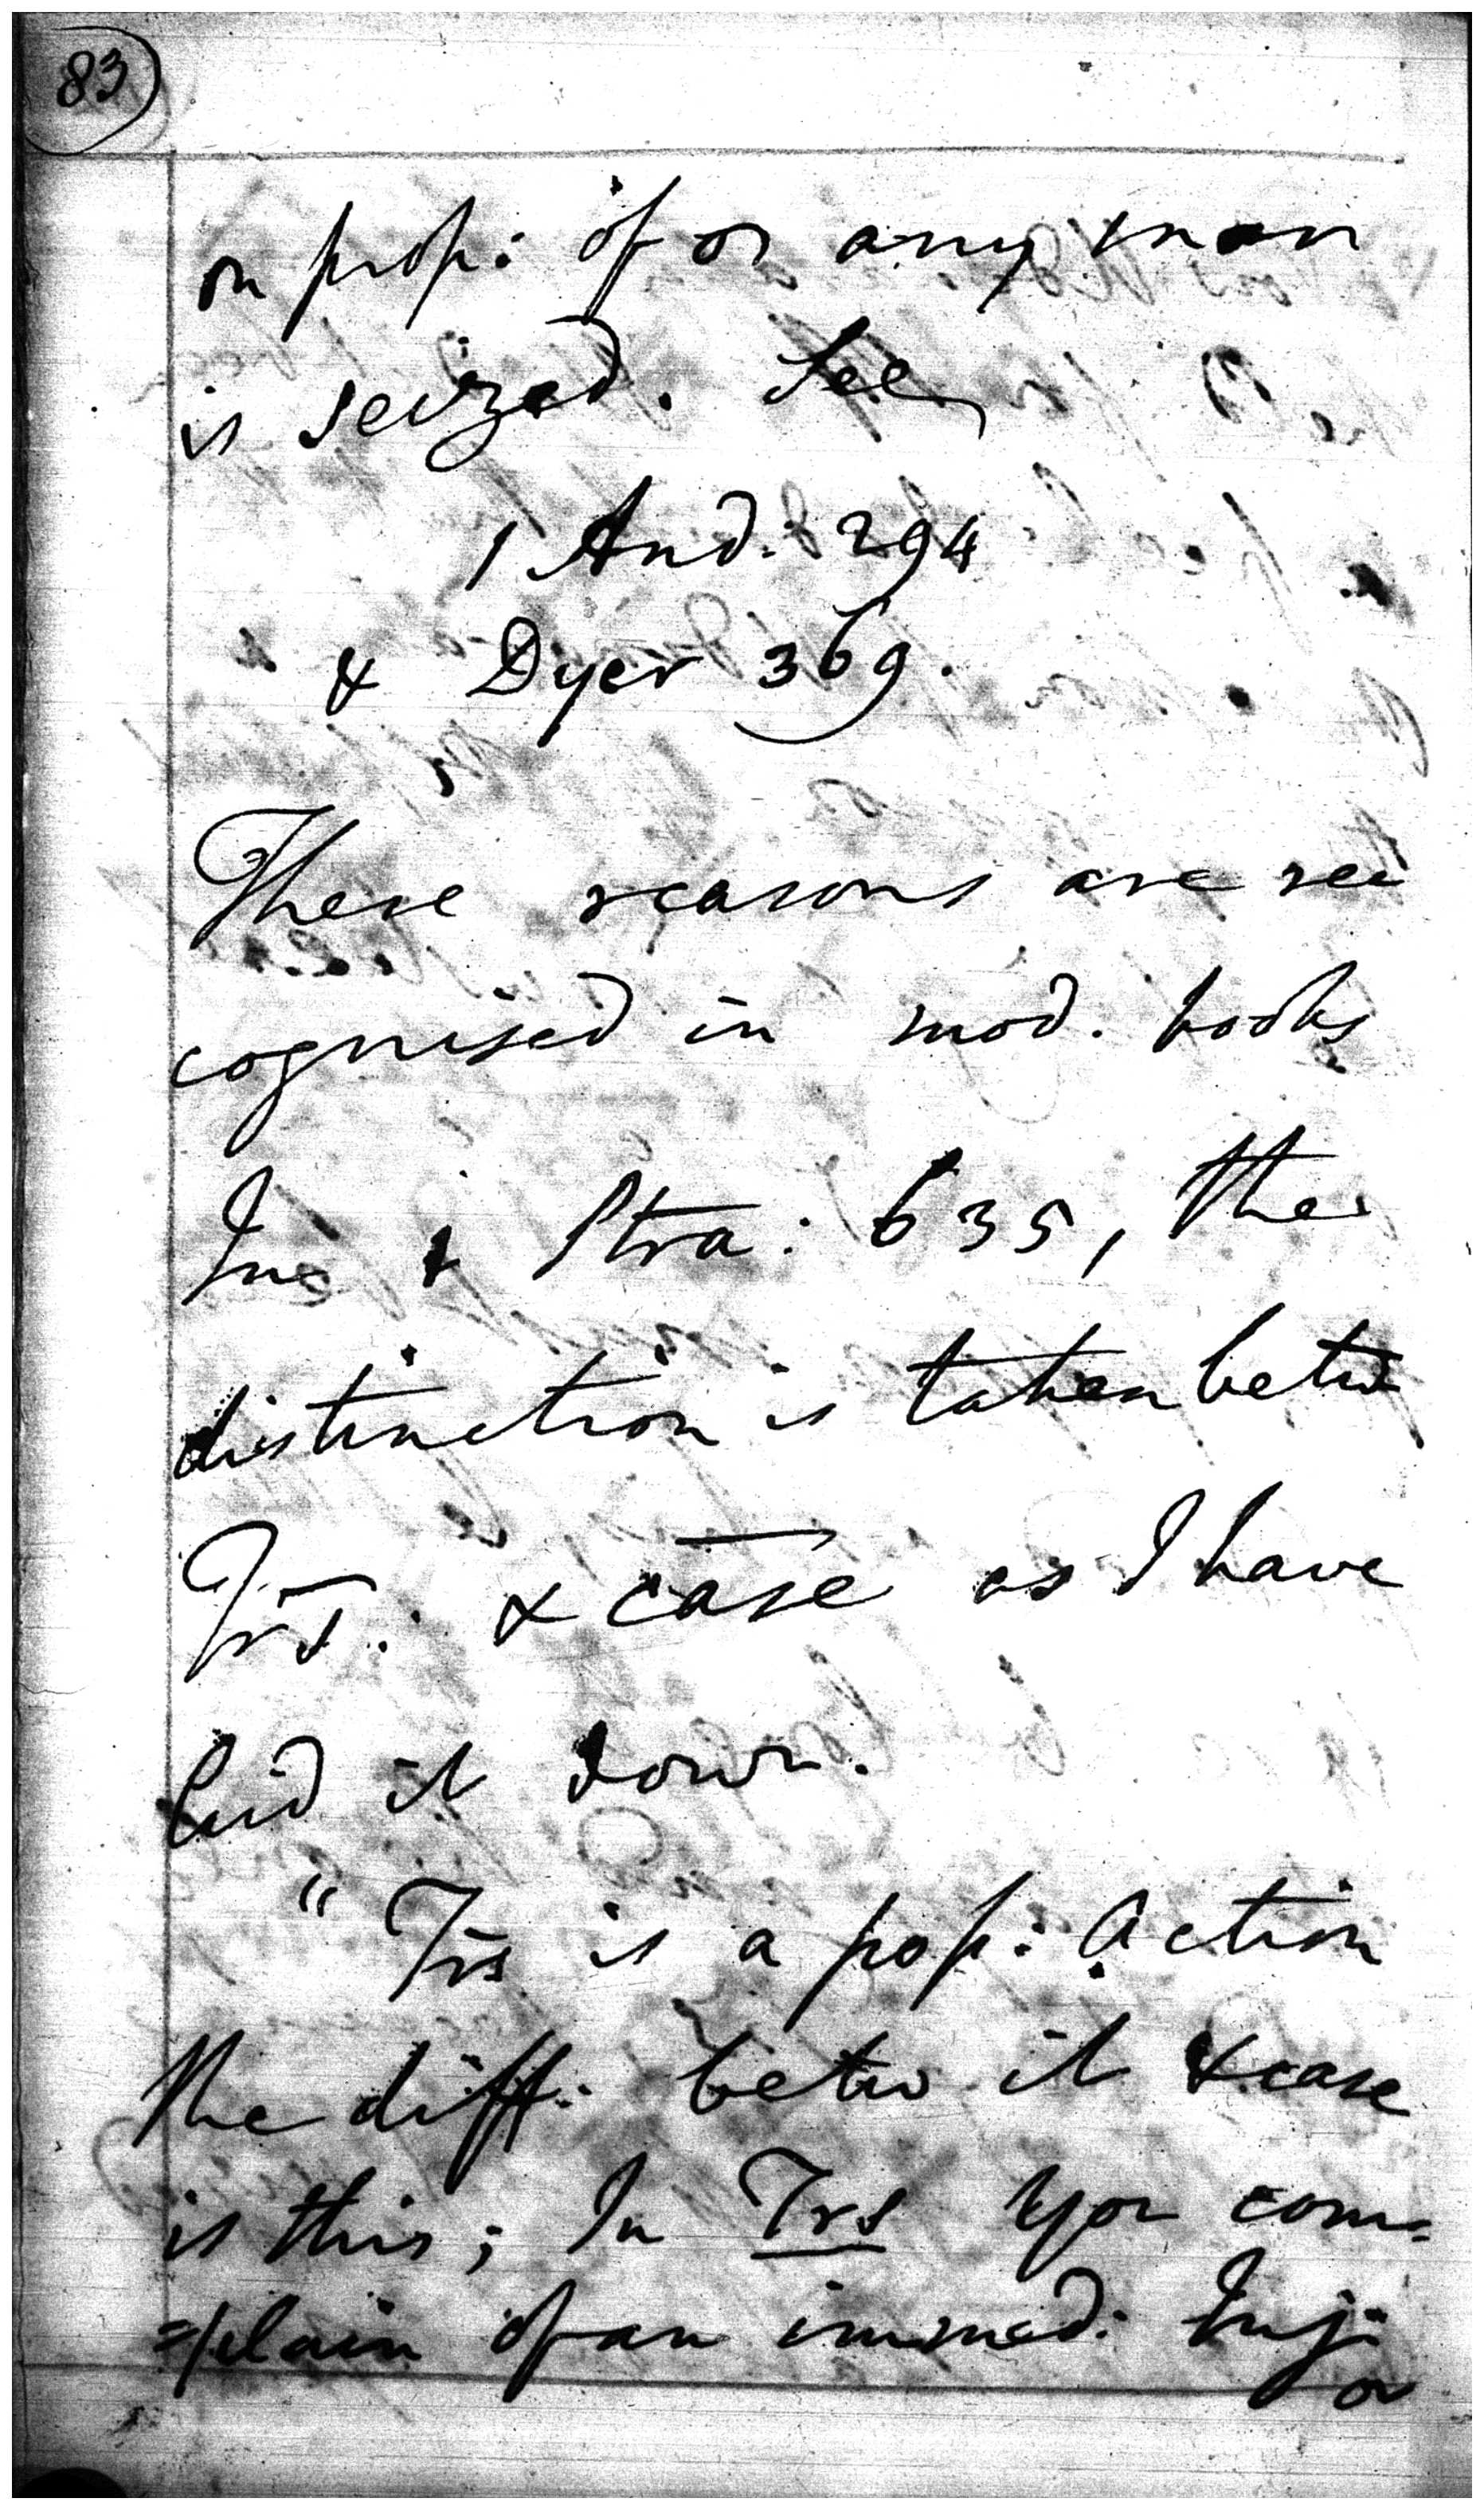 83
or prop: of or any man
is seized. See
1 And. 294
& Dyer 369.
These reasons are re
cognised in mod. books
In 1 Stra: 635, the
distinction is taken betw
Trs. & case as I have
laid it down.
" Trs is a pop: Action
the diff. betw it & case
is this; In Trs you com=
=plain of an immed: Inj:
or